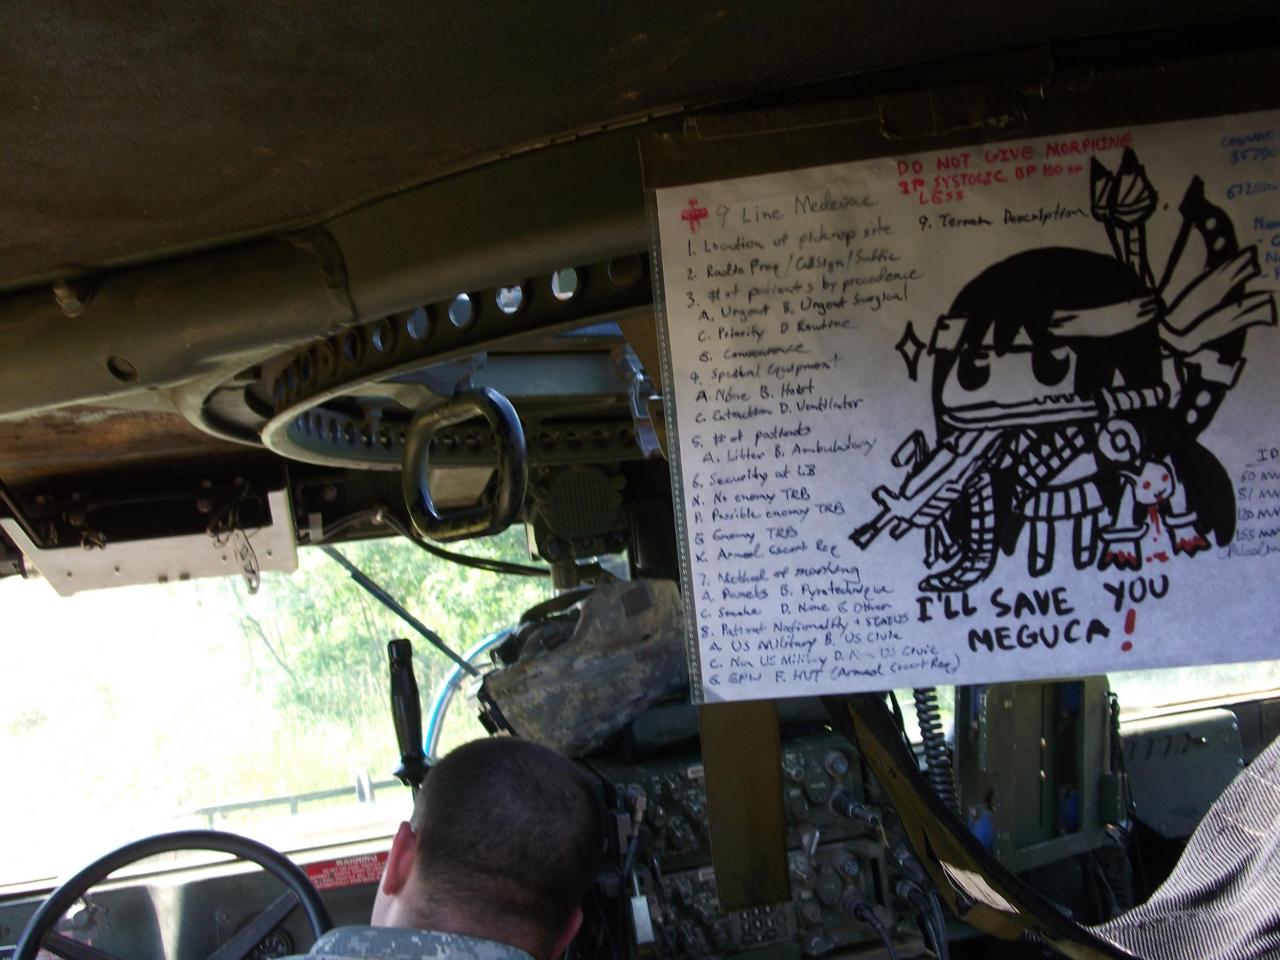 DO NOT GIVE MORPHINE
IF SYSTOLIC BP 100 or
LESS
9 Line Medevac
9. Terrain Description
1. Location of pick-up site
2. Radio Freq / CallSign / Suffic
3. # of patients by precedence
A. Urgent B. Urgent Surgical
C. Priority D Routine
E. Convenience
4. Special Equipment
A. None B. Hoist
C. Extraction D. Ventilator
5. # of patients
A. Litter B. Ambulatory
6. Security at
N. No enemy TRB
P. Possible enemy TRB
E Enemy TRB
X. Armed Escort Req
7. Method of marking
A. Panels B. Pyrotechnique
C. Smoke D. None E Other
8. Patient Nationality + STATUS
A. US Military B. US Civic
C. Non US Military D. Non US Civic
E EPW F. HVT (Armed Escort Req)
I'LL SAVE YOU
MEGUCA!
3570
ID
60 MM
81 MM
120 MM
155 MM
WARNING